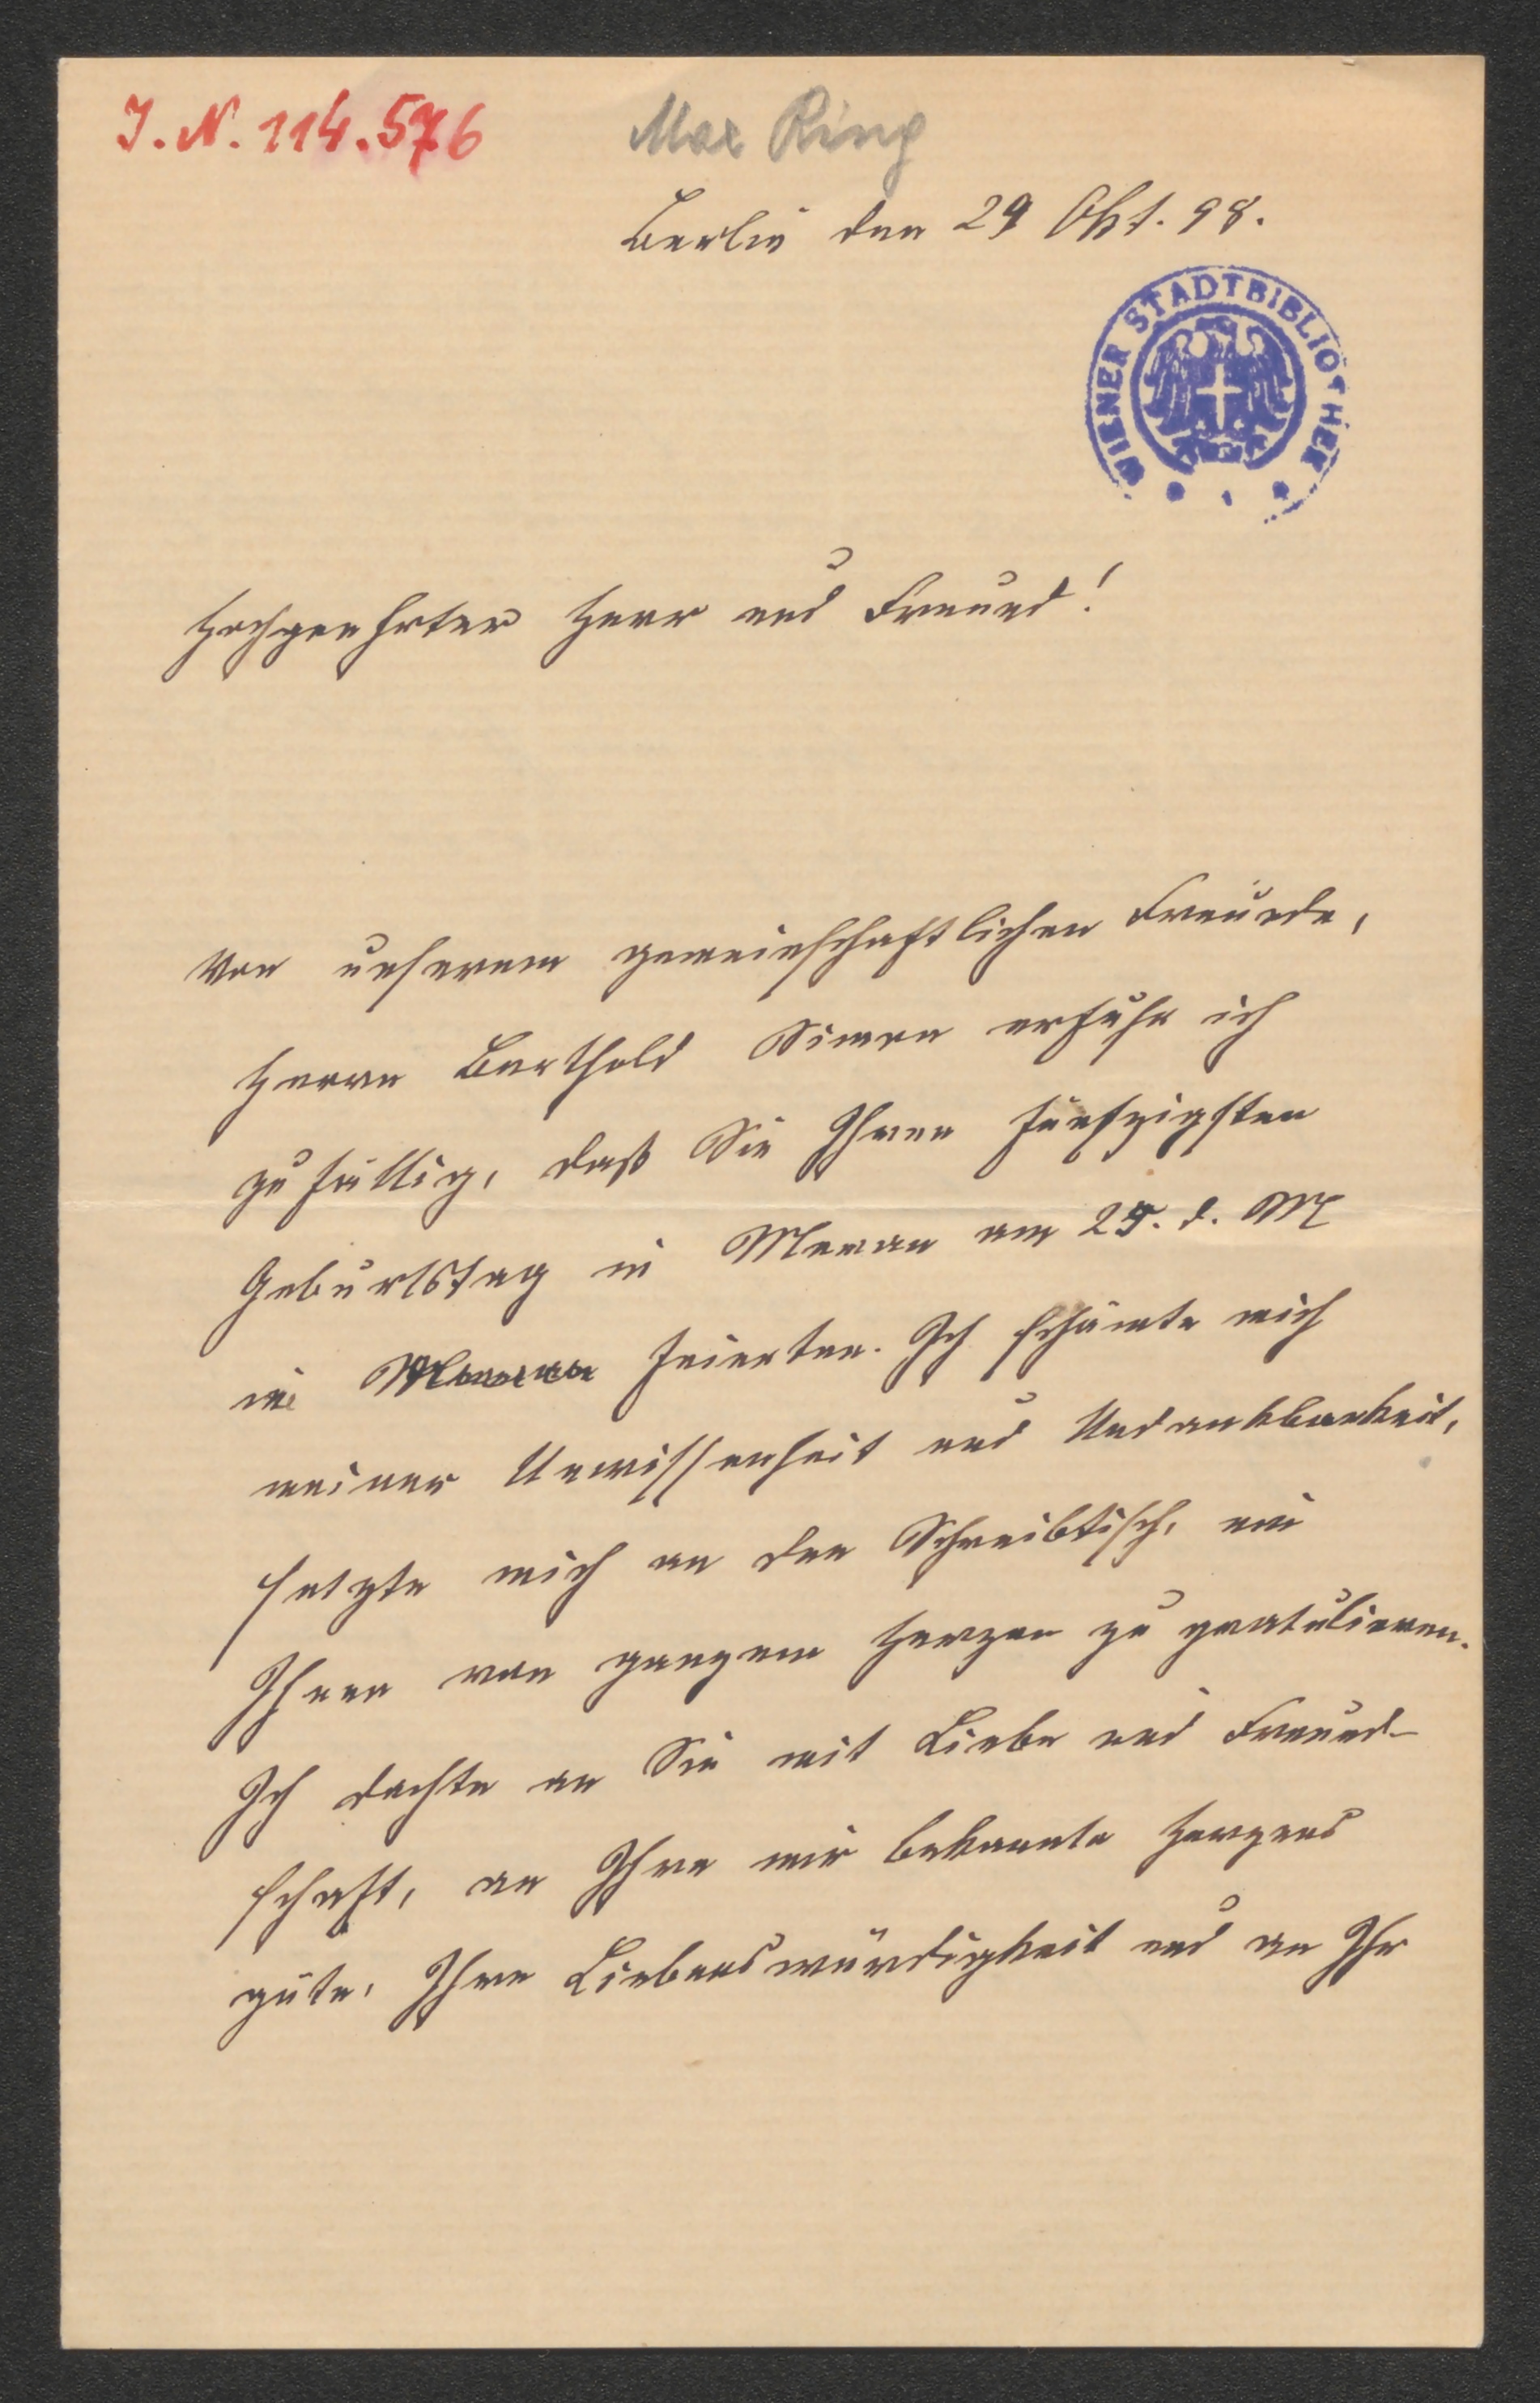 I. N. 114.576
Max Ring
Berlin den 29 Okt. 98.
WIENER STADTBIBLIOTHEK
Hochgeehrter Herr und Freund!
Von unserem gemeinschaftlichen Freunde,
Herrn Berthold Simon erfuhr ich
zufällig, daß Sie Ihren fünfzigsten
Geburtstag in Meran am 25. d. M
in feierten. Ich schämte mich
meiner Unwissenheit und Undankbarkeit,
setzte mich an den Schreibtisch, um
Ihnen von ganzem Herzen zu gratulieren.
Ich dachte an Sie mit Liebe und Freund-
schaft, an Ihre mir bekannte Herzens
güte, Ihre Liebenswürdigkeit und an Ihr